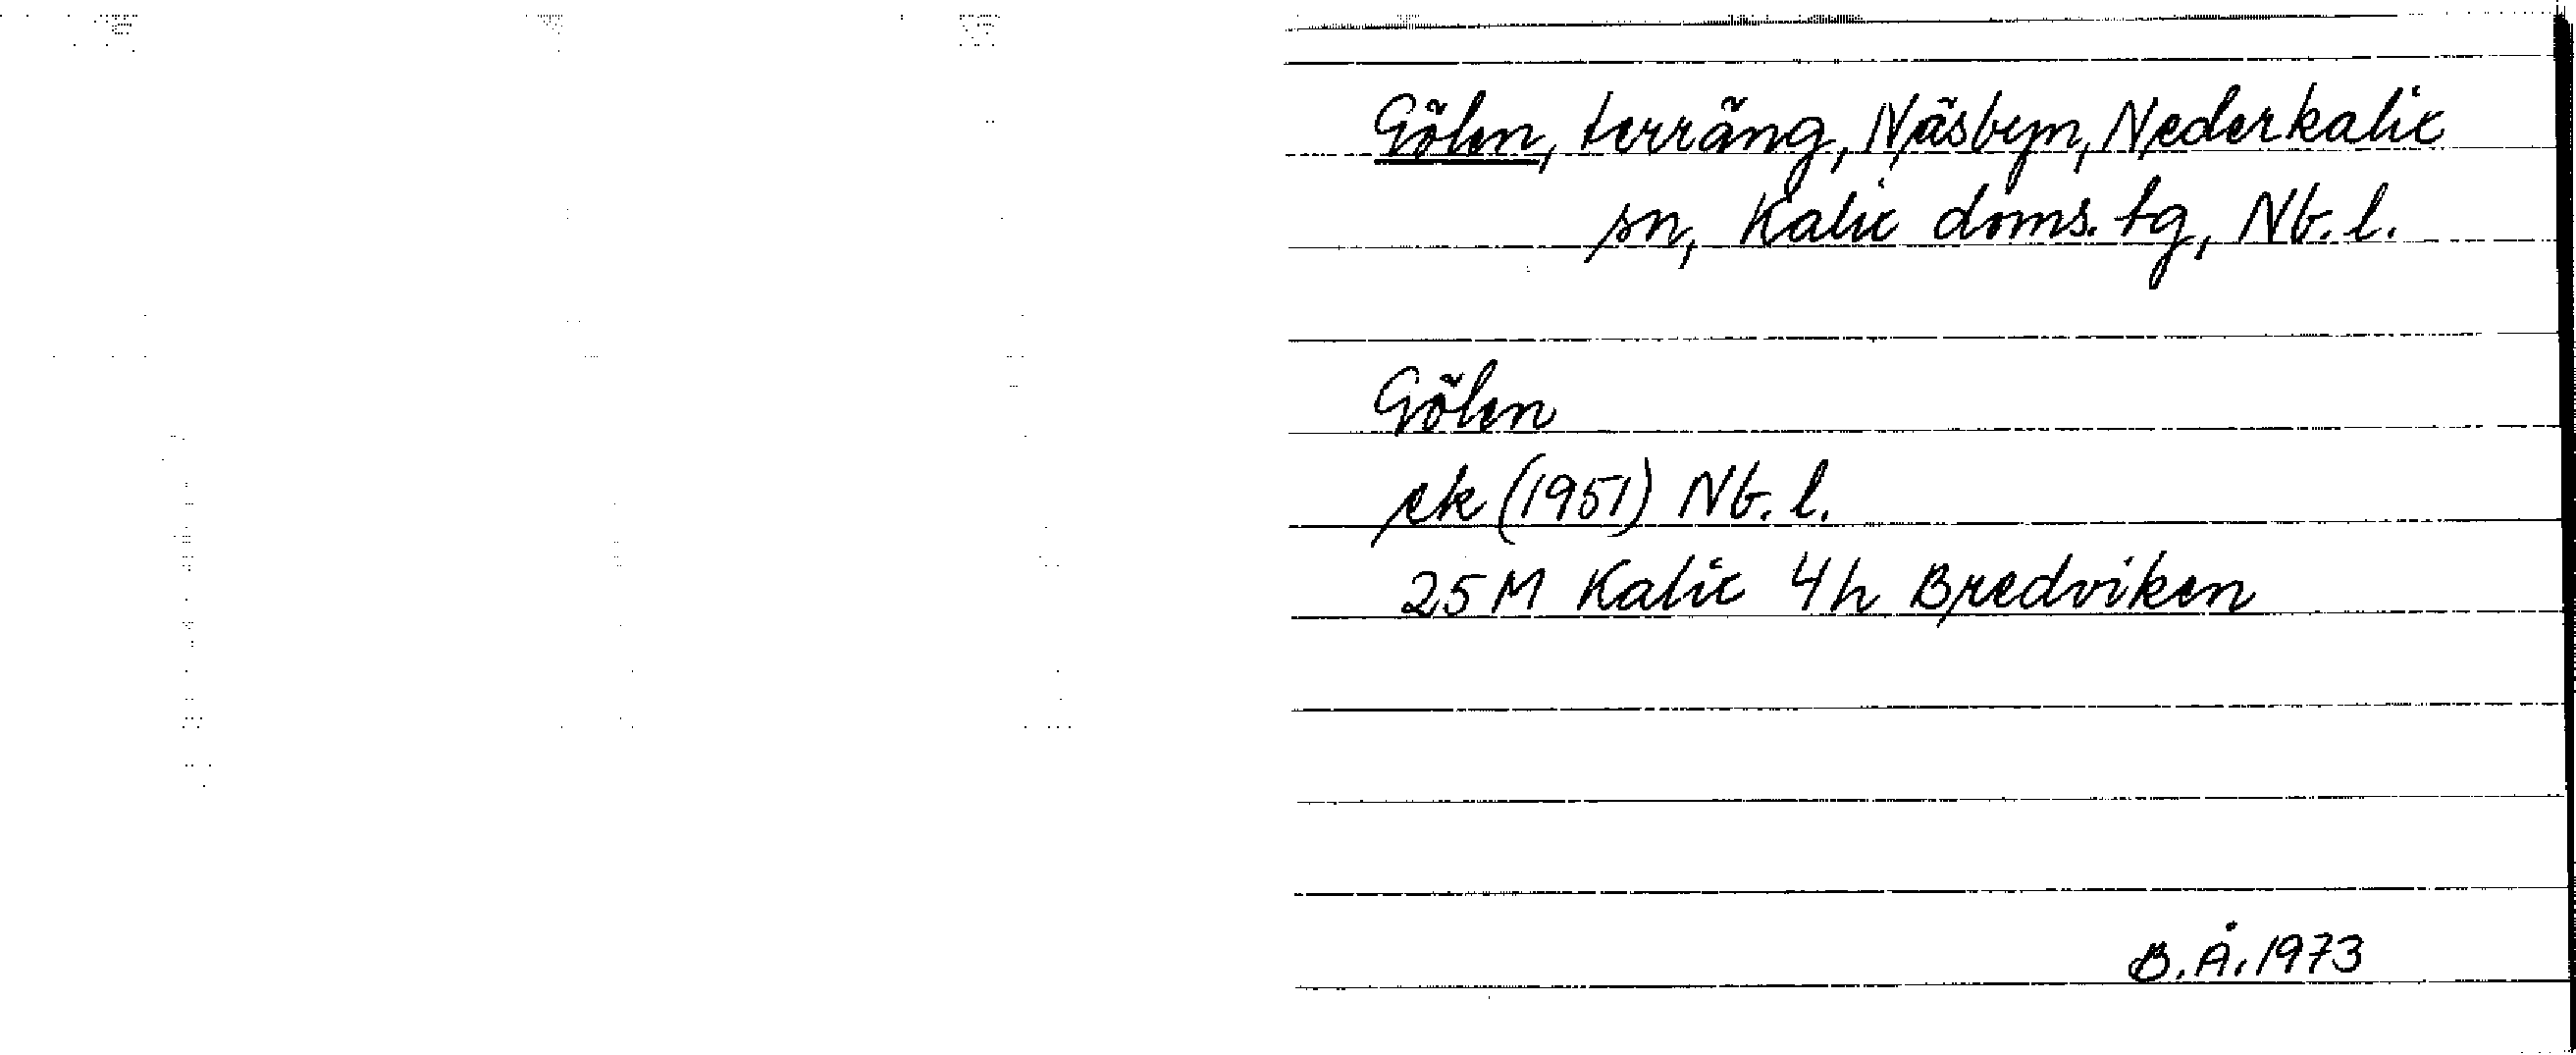 Gölen, terräng, Näsbyn, Nederkalix
sn, Kalix doms. tg, Nb. l.
Gölen
ek (1951) Nb. l.
25 M Kalix 4h Bredviken
B. Å. 1973